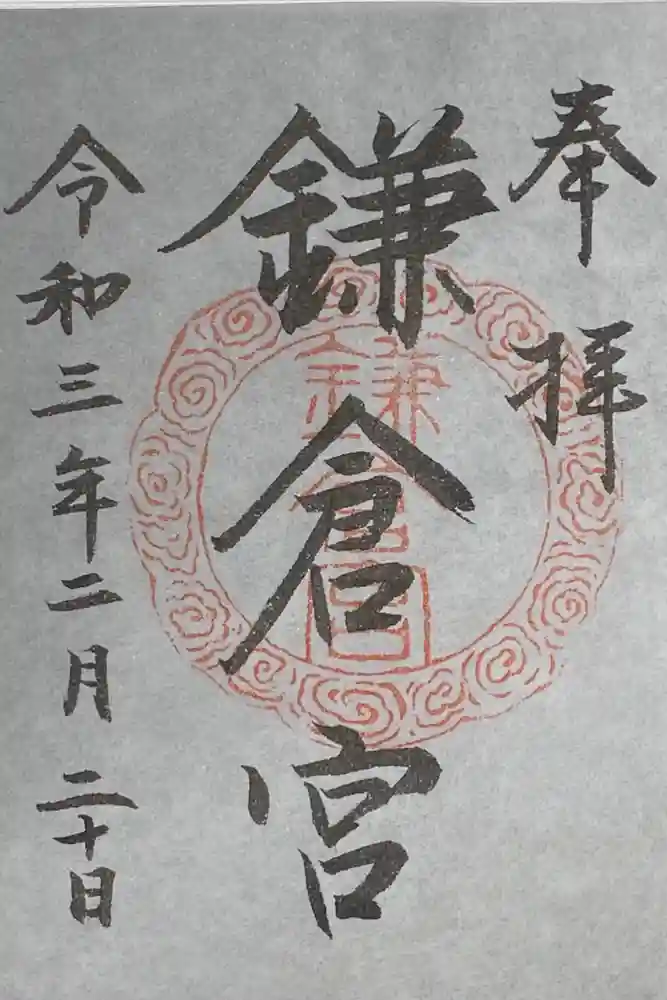 奉拝
鎌倉宮
令和三年二月二十日